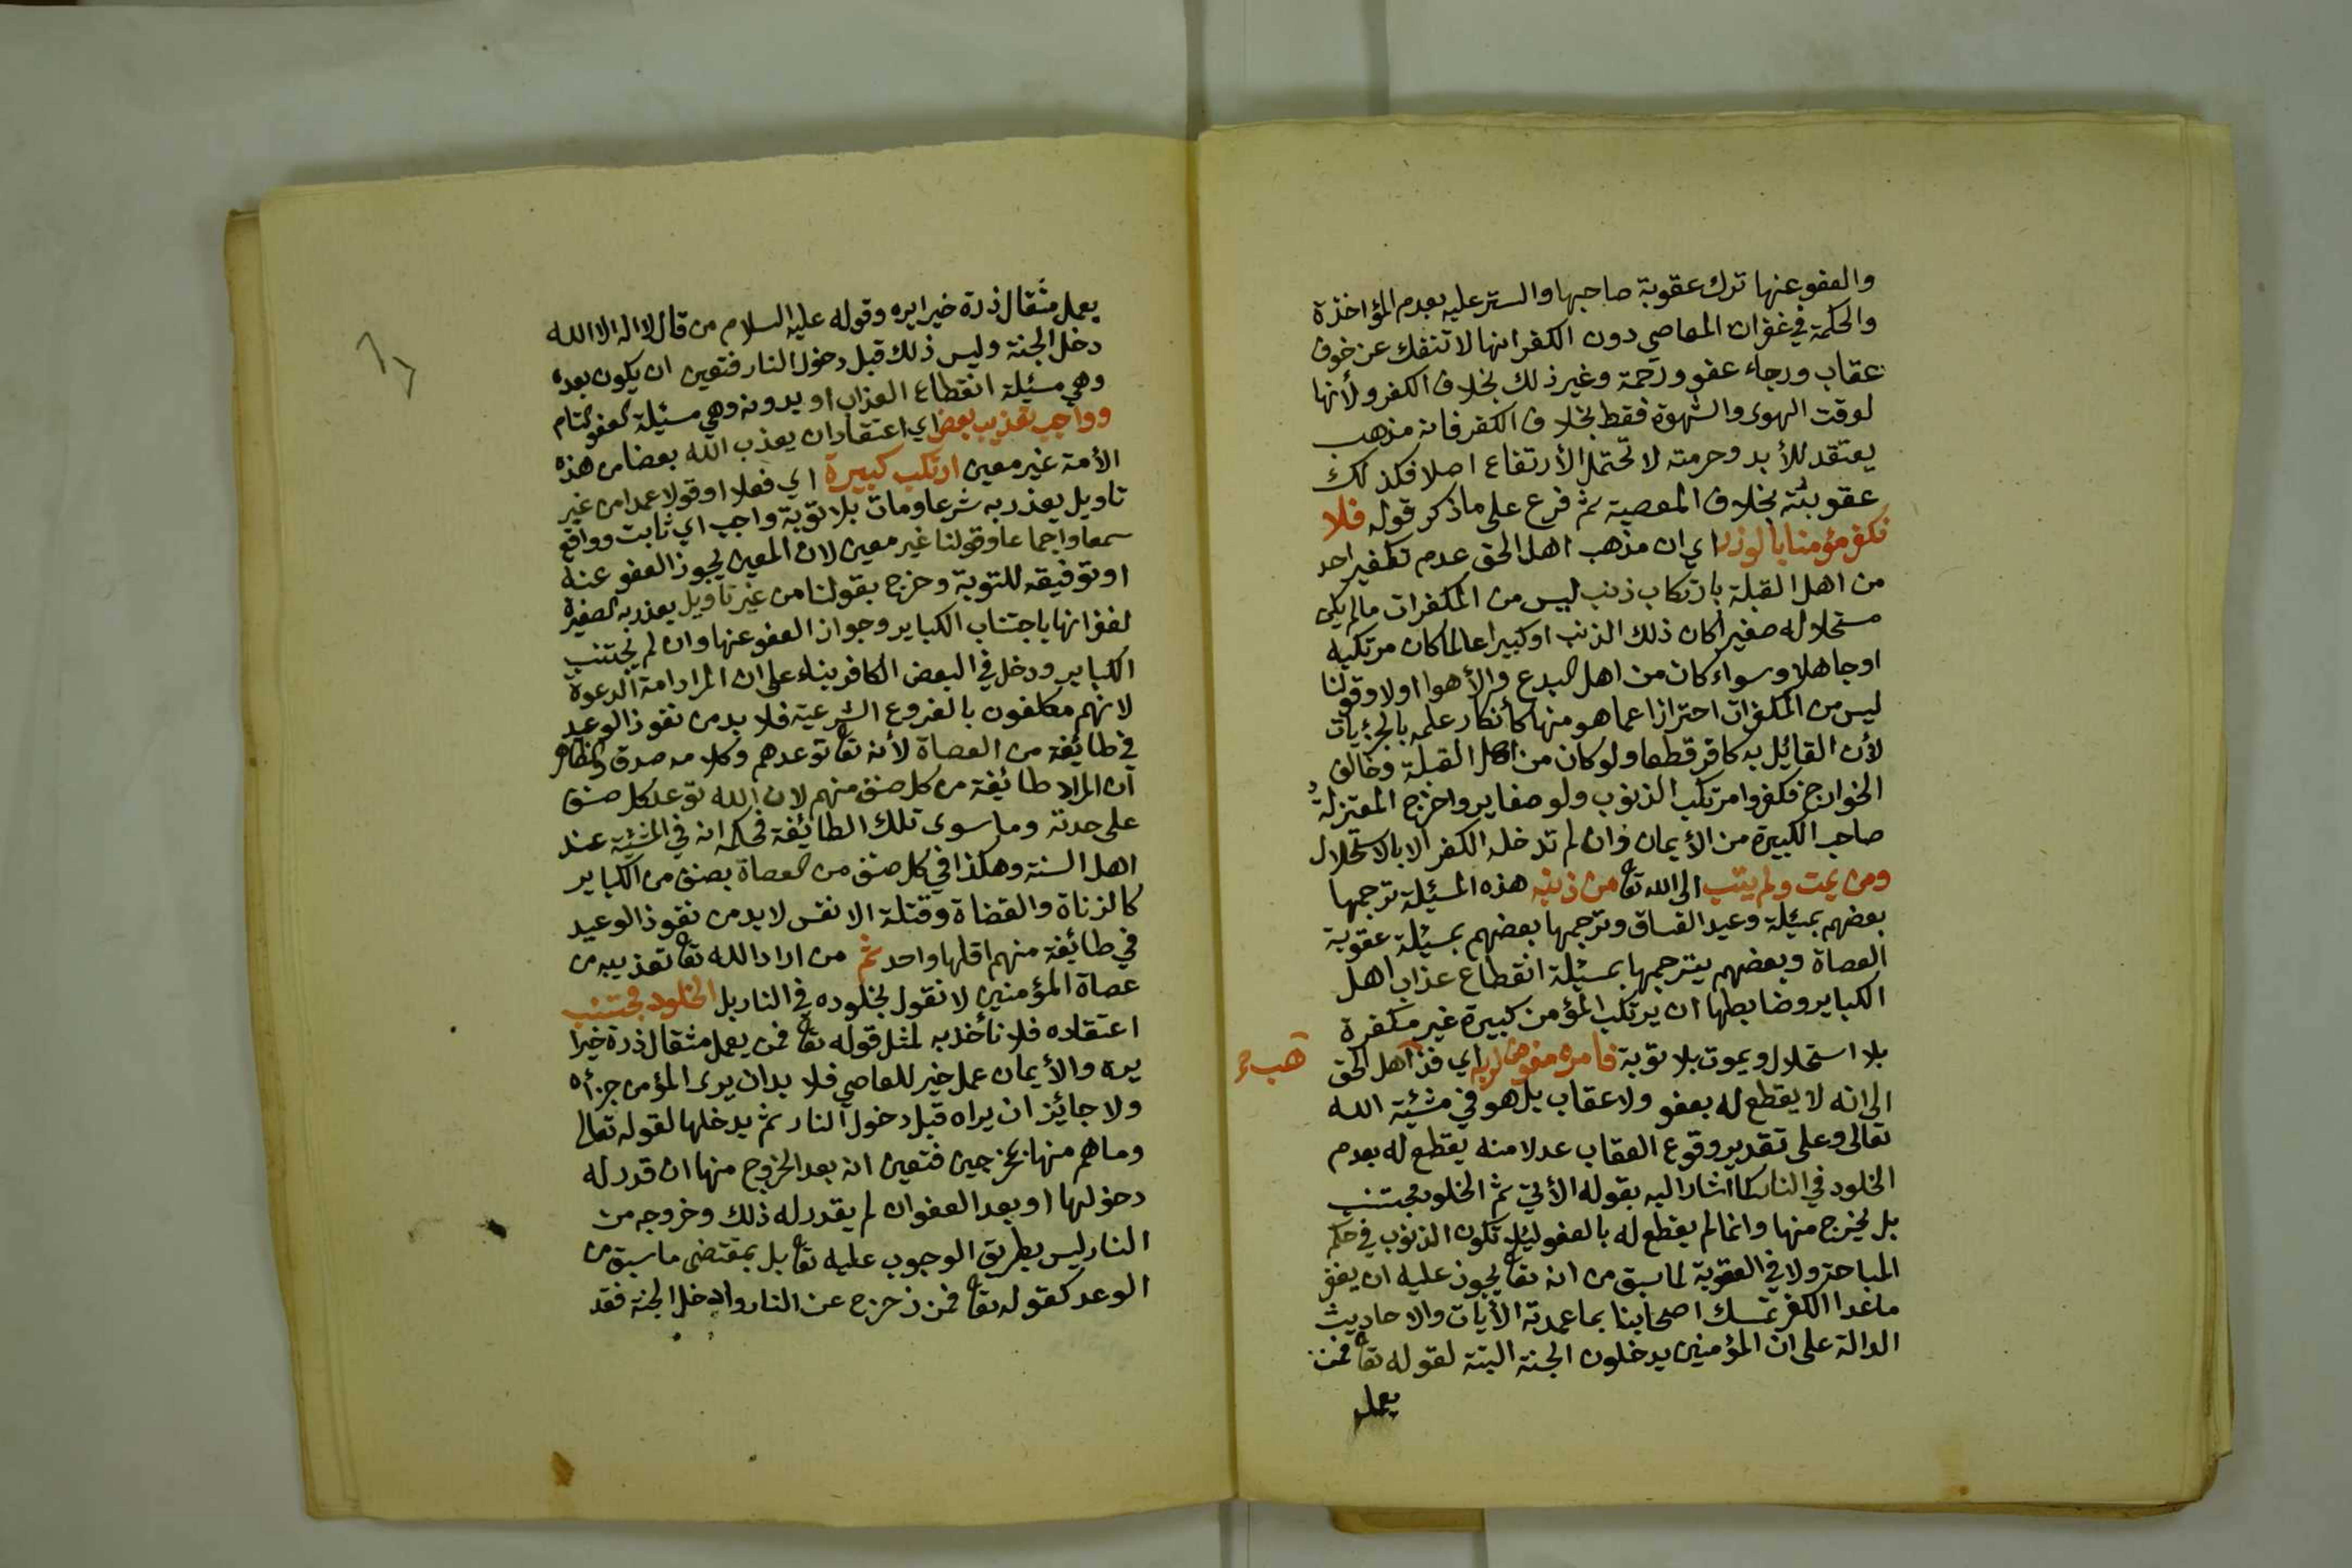 والعفو عنها ترك عقوبة صاحبها والستر عليه بعدم المؤاخذة
والحكمة في غفران المعاصي دون الكفر انها لا تنفك عن خوف
عقاب ورجاء عفو ورحمة وغير ذلك بخلاف الكفر ولأنها
لوقت الهوى والشهوة فقط بخلاف الكفر فانه مذهب
يعتقد للأبد وحرمته لا تحتمل الأرتفاع اصلا فكذلك
عقوبته بخلاف المعصية ثم فرع على ما ذكر قوله فلا
نكفر مؤمنا بالوزر اي ان مذهب اهل الحق عدم تكفير احد
من اهل القبلة بارتكاب ذنب ليس من المكفرات ما لم يكن
مستحلا له صغيرا كان ذلك الذنب او كبيرا عالما كان مرتكبه
او جاهلا وسواء كان من اهل البدع والأهوا اولا وقولنا
ليس من المكفرات احترازا عما هو منها كأنكار علمه بالجزئيات
لأن القائل به كافر قطعا ولو كان من اهل القبلة وخالف
الخوارج فكفروا مرتكب الذنوب ولو صغاير واخرج المعتزلة
صاحب الكبيرة من الأيمان وان لم تدخله الكفر الا بالاستحلال
ومن يمت ولم يتب الى الله تعا من ذنبه هذه المسئلة ترجمها
بعضهم بمسئلة وعيد الفساق وترجمها بعضهم بمسئلة عقوبة
العصاة وبعضهم يترجمها بمسئلة انقطاع عذاب اهل
الكباير وضابطها ان يرتكب المؤمن كبيرة غير مكفرة
بلا استحلال ويموت بلا توبة فامره مفوض لربه اي فذ اهل الحق
هب
الى انه لا يقطع له بعفو ولا عقاب بل هو في مشئية الله
تعالى وعلى تقدير وقوع العقاب عدلا منه يقطع له بعدم
الخلود في النار كما اشار اليه بقوله الأتي ثم الخلود مجتنب
بل يخرج منها وانما لم يقطع له بالعفو ليلا تكون الذنوب في حكم
المباحة ولا في العقوبة لما سبق من انه تعا يجوز عليه ان يغفر
ما عدا الكفر تمسك اصحابنا بما عمدته الأيات والاحاديث
الدالة على ان المؤمنين يدخلون الجنة البتة لقوله تعا فمن
يعمل
يعمل مثقال ذرة خيرا يره وقوله عليه السلام من قال لا اله الا الله
دخل الجنة وليس ذلك قبل دخول النار فتعين ان يكون بعده
وهي مسئلة انقطاع العذاب او بدونه وهي مسئلة العفو التام
وواجب تعذيب بعض اي اعتقاد ان يعذب الله بعضا من هذه
الأمة غير معين ارتكب كبيرة اي فعلا او قولا عمدا من غير
تاويل يعذر به شرعا ومات بلا توبة واجب اي ثابت وواقع
سمعا واجماعا وقولنا غير معين لان المعين يجوز العفو عنه
او توفيقه للتوبة وخرج بقولنا من غير تاويل يعذر به الصغيرة
لغفرانها باجتناب الكباير وجواز العفو عنها وان لم يجتنب
الكباير ودخل في البعض الكافر بناء على ان المراد امة الدعوة
لانهم مكلفون بالفروع الشرعية فلا بد من نفوذ الوعيد
في طائيفة من العصاة لأنه تعا توعدهم وكلامه صدق والظاهر
ان المراد طائيفة من كل صنف منهم لان الله توعد كل صنف
على حدته وما سوى تلك الطائيفة فحكمه انه في المشئية عند
اهل السنة وهكذا في كل صنف من العصاة بصنف من الكباير
كالزناة والقضاة وقتلة الانفس لا بد من نفوذ الوعيد
في طائيفة منهم اقلها واحد ثم من اراد الله تعا تعذيبه من
عصاة المؤمنين لا نقول بخلوده في النار بل الخلود مجتنب
اعتقاده فلا نأخذ به لمثل قوله تعا فمن يعمل مثقال ذرة خيرا
يره والأيمان عمل خير للعاصي فلا بد ان يرى المؤمن جزأه
ولا جائيز ان يراه قبل دخول النار ثم يدخلها لقوله تعالى
وما هم منها بمخرجين فتعين انه بعد الخروج منها ان قدر له
دخولها او بعد العفو ان لم يقدر له ذلك وخروجه من
النار ليس بطريق الوجوب عليه تعا بل بمقتضى ما سبق من
الوعد كقوله تعا فمن زحزح عن النار وادخل الجنة فقد